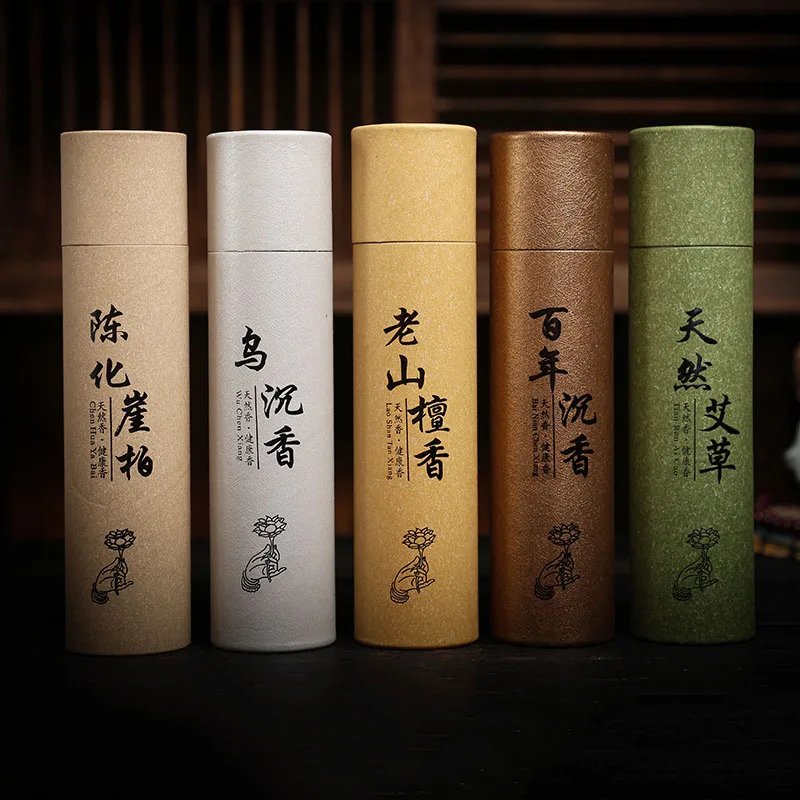 陈化
崖柏
天然香·健康香
Chen Hua Ya Bai
乌
沉香
天然香·健康香
Wu Chen Xiang
老山
檀香
天然香·健康香
Lao Shan Tan Xiang
百年
沉香
天然香·健康香
Bai Nian Chen Xiang
天然
艾草
天然香·健康香
Tian Ran Ai Cao